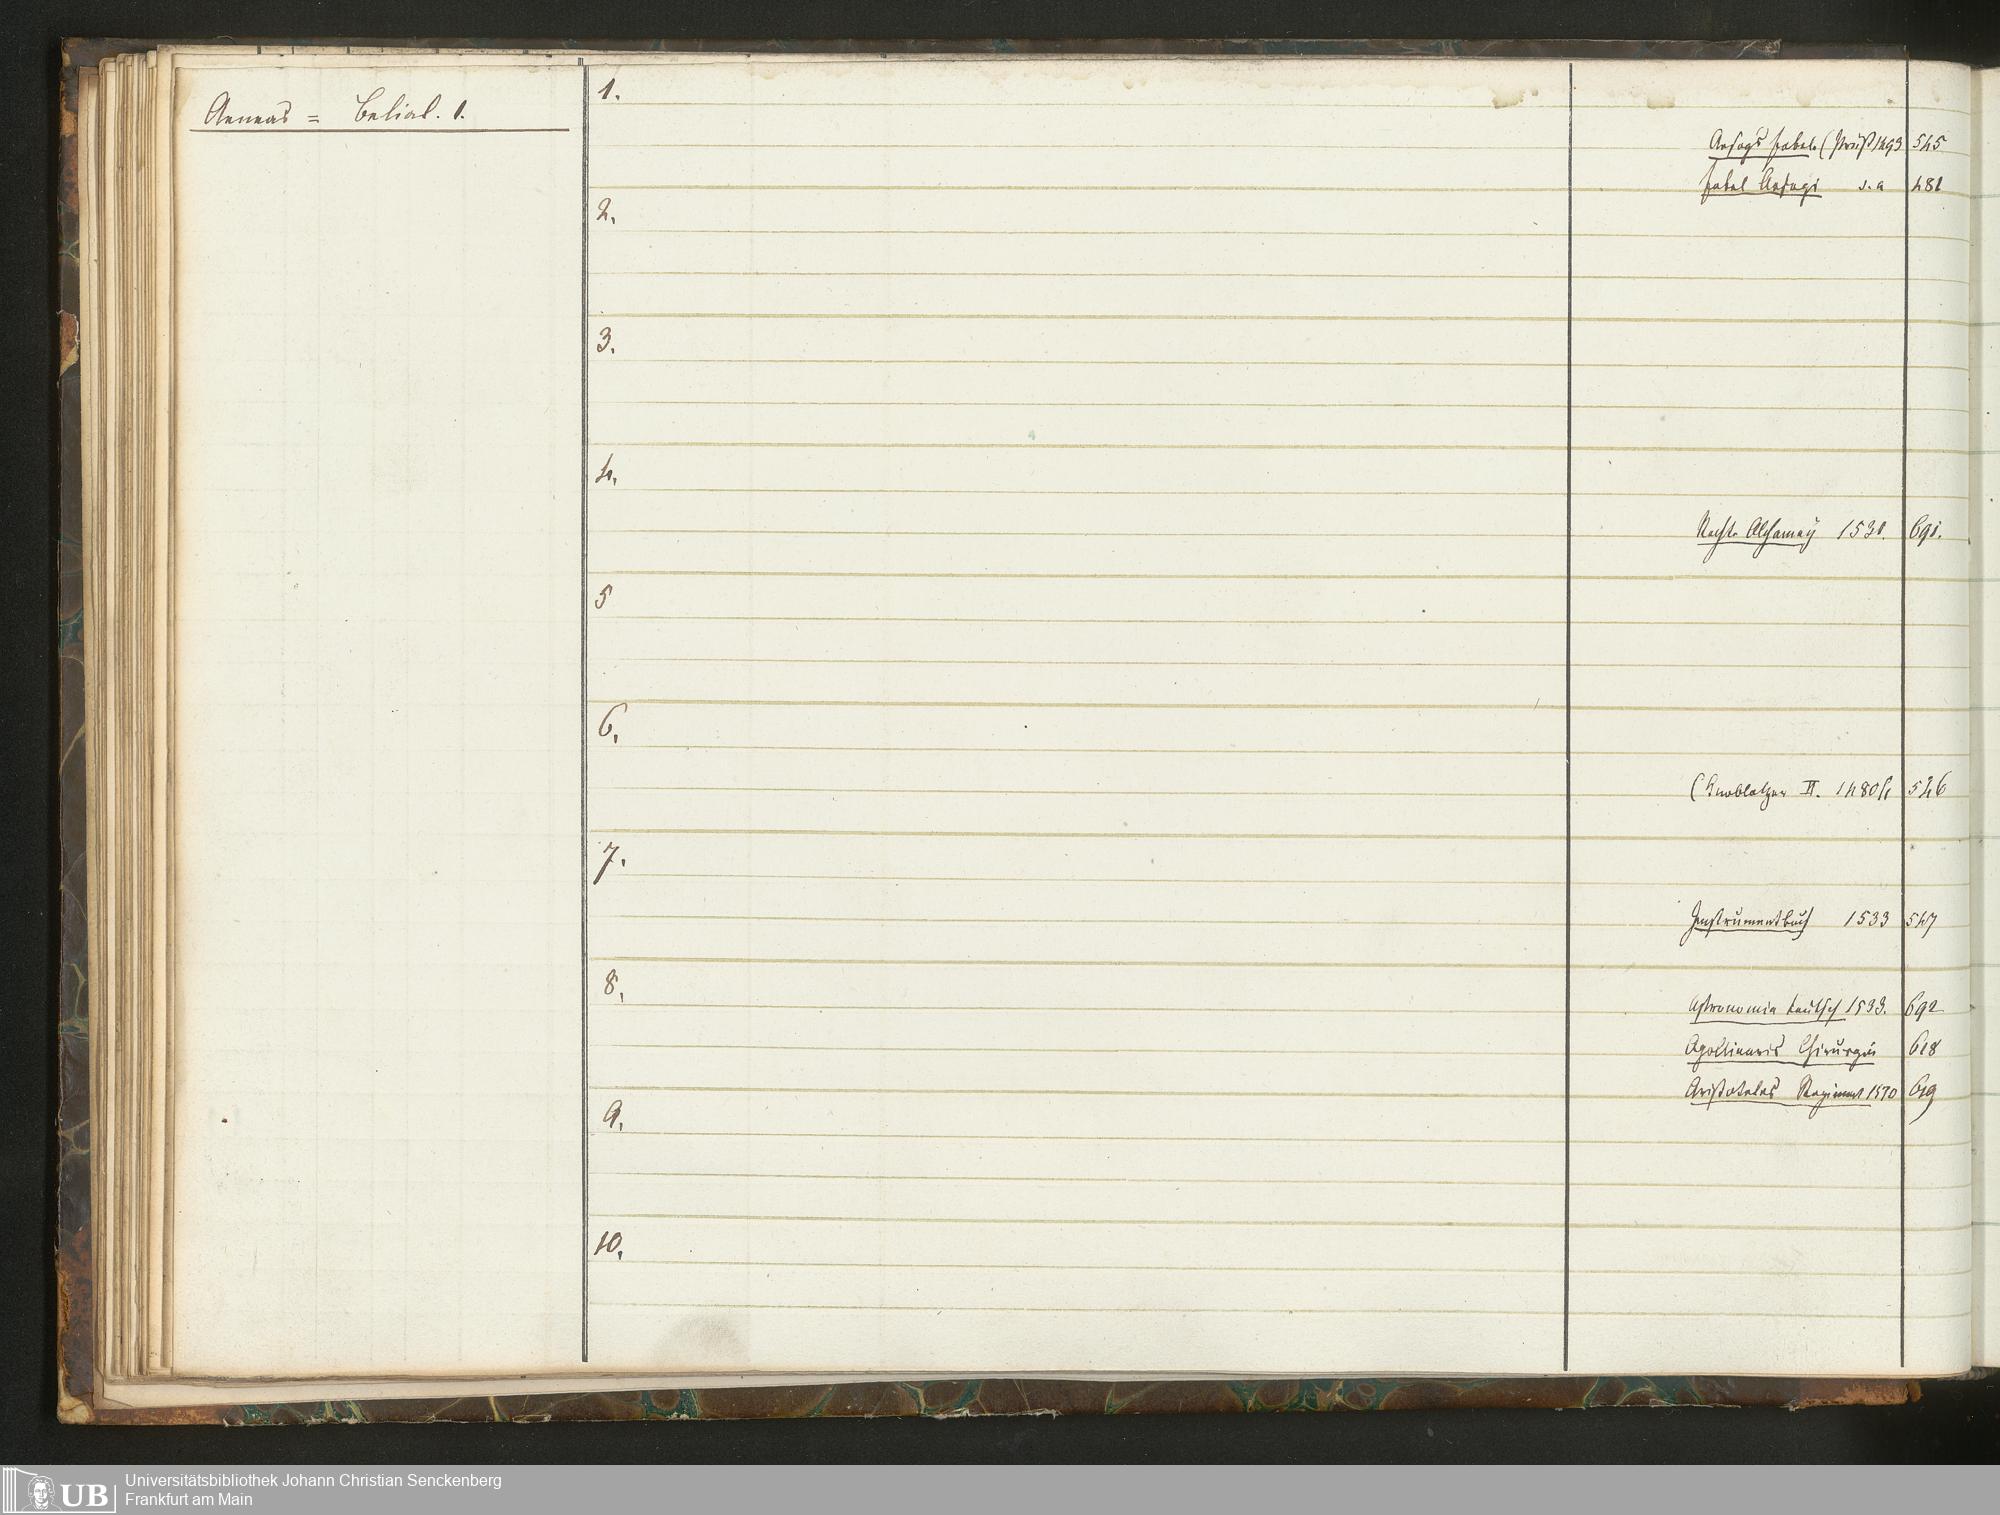 Aeneas = Belial. 1.
1.
Aesops Fabeln (Prüß 1493 545
Fabel Aesopi s. a 481
2.
3.
4.
Rechte Alchamey 1531. 691.
5
6.
(Knoblotzer II. 1480/1 546
7.
Instrumentbuch 1533 547
8.
Astronomia teutsch 1533. 692
Apollinaris Chirurgie 618
Aristoteles Regiment 1570 619
9.
10.
UB
Universitätsbibliothek Johann Christian Senckenberg
Frankfurt am Main